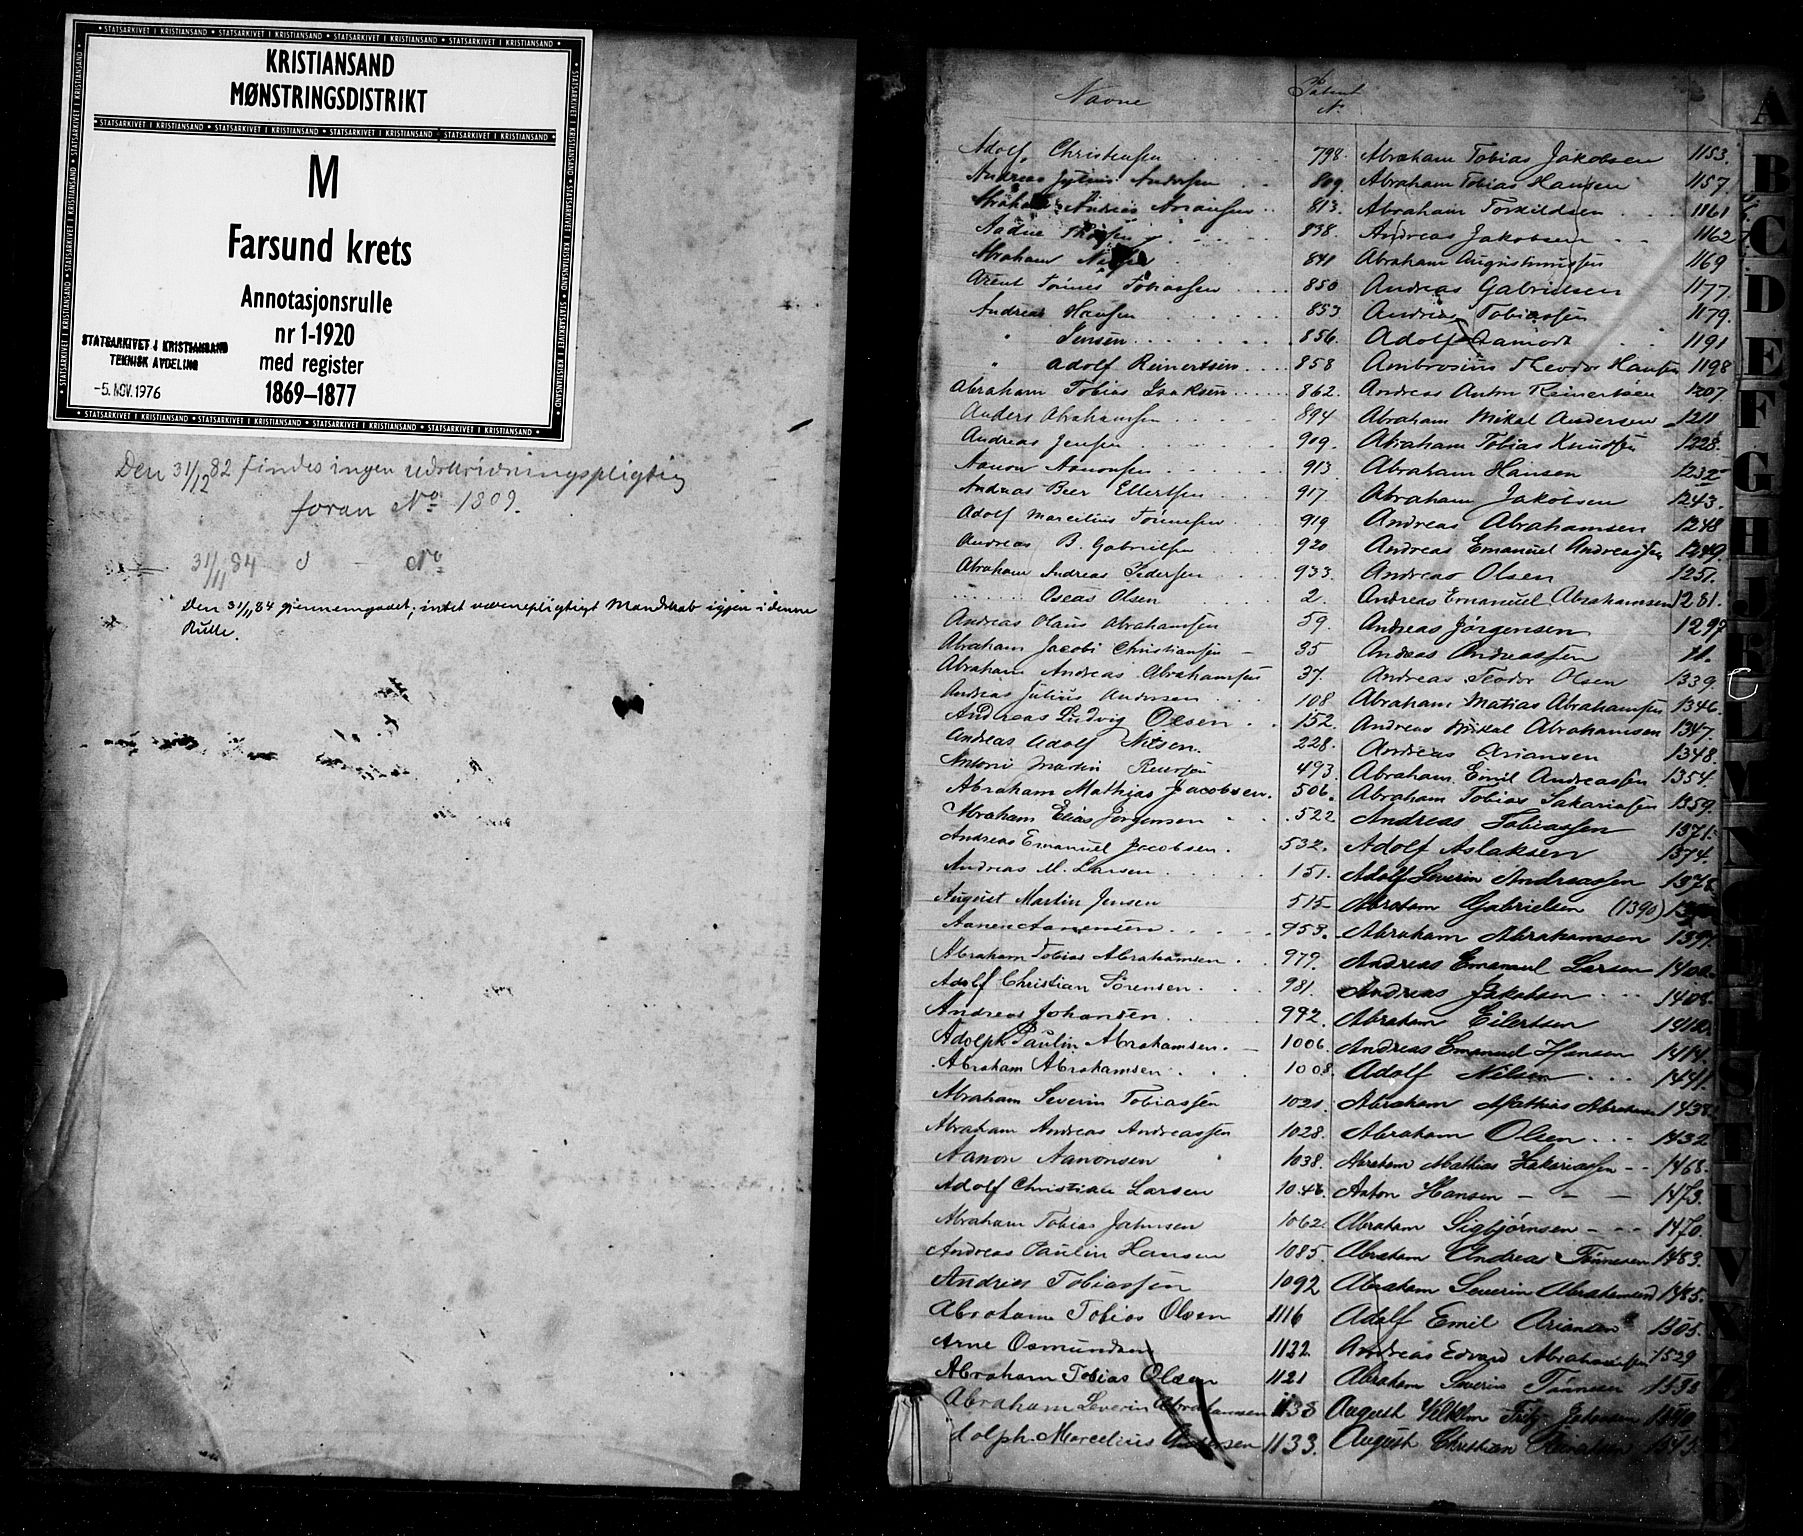 KRISTIANSAND
MØNSTRINGSDISTRIKT
M
Farsund krets
Annotasjonsrulle
nr 1-1920
med register
1869–1877
STATSARKIVET I KRISTIANSAND
TEKNISK AVDELING
-5. NOV. 1976
Den 31/12 82 findes ingen udskrivningspligtig
foran No 1809.
31/11 84 No
Den 31/11 84 gjennemgaaet; intet værnepligtigt Mandskab igjen i denne
Rulle.
Navne
No
Adolf Christensen 798.
Andreas Julius Andersen 809.
Andreas 813.
838.
Abraham 841
Arent Tønnes Tobiassen 850
Andreas Hansen 853
" Jensen 856.
" Adolf Reinertsen 858
Abraham Tobias Isaksen 862.
Anders Abrahamsen 894
Andreas Jensen 909.
Aanon Aanonsen 913
Andreas Beer Ellertsen 917
Adolf Marcilius Tønnesen 919
Andreas B. Gabrielsen 920
Abraham Andreas Pedersen 933.
Oseas Olsen 2.
Andreas Olaus Abrahamsen 59.
Abraham Jacobi Christiansen 35
Abraham Andreas Abrahamsen 37.
Andreas Julius Andersen 108
Andreas Ludvig Olsen 152.
Andreas Adolf Nilsen 228.
Martin 493.
Abraham Mathias Jacobsen 506.
Abraham Elias Jørgensen 522
Andreas Emanuel Jacobsen 532.
Andreas M. Larsen 151.
August Martin Jensen 515
Aanen Aanensen 953.
Abraham Tobias Abrahamsen 979.
Adolf Christian Sørensen 981.
Andreas Johansen 992.
Adolph Paulin Abrahamsen 1006.
Abraham Abrahamsen 1008.
Abraham Severin Tobiassen 1021.
Abraham Andreas Andreassen 1028.
Aanon Aanonsen 1038.
Adolf Christian Larsen 1046.
Abraham Tobias Jahnsen 1062.
Andreas Paulin Hansen 1085
Andreas Tobiassen 1092
Abraham Tobias Olsen 1116
Arne Osmundsen 1122
Abraham Tobias Olsen 1121
Abraham Severin Abrahamsen 1133
Adolph Marcelius Andersen 1133.
Abraham Tobias Jakobsen 1153.
Abraham Tobias Hansen 1157
Abraham Torkildsen 1161
Andreas Jakobsen 1162
Abraham Augustinussen 1169
Andreas Gabrielsen 1177.
Andreas Tobiassen 1179.
Adolf 1191
Ambrosius Theodor Hansen 1198
Andreas Anton Reinertsen 1207
Abraham Mikal Andersen 1211
Abraham Tobias Knudsen 1228.
Abraham Hansen 1232
Abraham Jakobsen 1243.
Andreas Abrahamsen 1248
Andreas Emanuel Andreassen 1249.
Andreas Olsen 1251.
Andreas Emanuel Abrahamsen 1281.
Andreas Jørgensen 1297
Andreas Andreassen 11.
Andreas Teodor Olsen 1339.
Abraham Matias Abrahamsen 1346.
Andreas Mikal Abrahamsen 1347.
Andreas Ariansen 1348.
Abraham Emil Andreassen 1354.
Abraham Tobias Sakariasen 1359.
Andreas Tobiassen 1371.
Adolf Aslaksen 1374.
Adolf Severin Andreassen 1378
Abraham Gabrielsen (1390)
Abraham Abrahamsen 1397.
Andreas Emanuel Larsen 1400.
Andreas Jakobsen 1408.
Abraham Eilertsen 1410.
Andreas Emanuel Hansen 1414.
Adolf Nilsen 1441.
Abraham Mathias Abrahamsen 1438.
Abraham Olsen 1432
Abraham Mathias Zakariassen 1468.
Anton Hansen 1473.
Abraham Sigbjørnsen 1470.
Abraham Andreas Tønnesen 1483.
Abraham Severin Abrahamsen 1485.
Adolf Emil Ariansen 1505.
Andreas Edvard Abrahamsen 1529
Abraham Severin Tønnesen
August Vilhelm Johnsen
August Christian
A
B
C
D
E
F
G
H
J
K
L
M
N
O
S
T
U
V
X